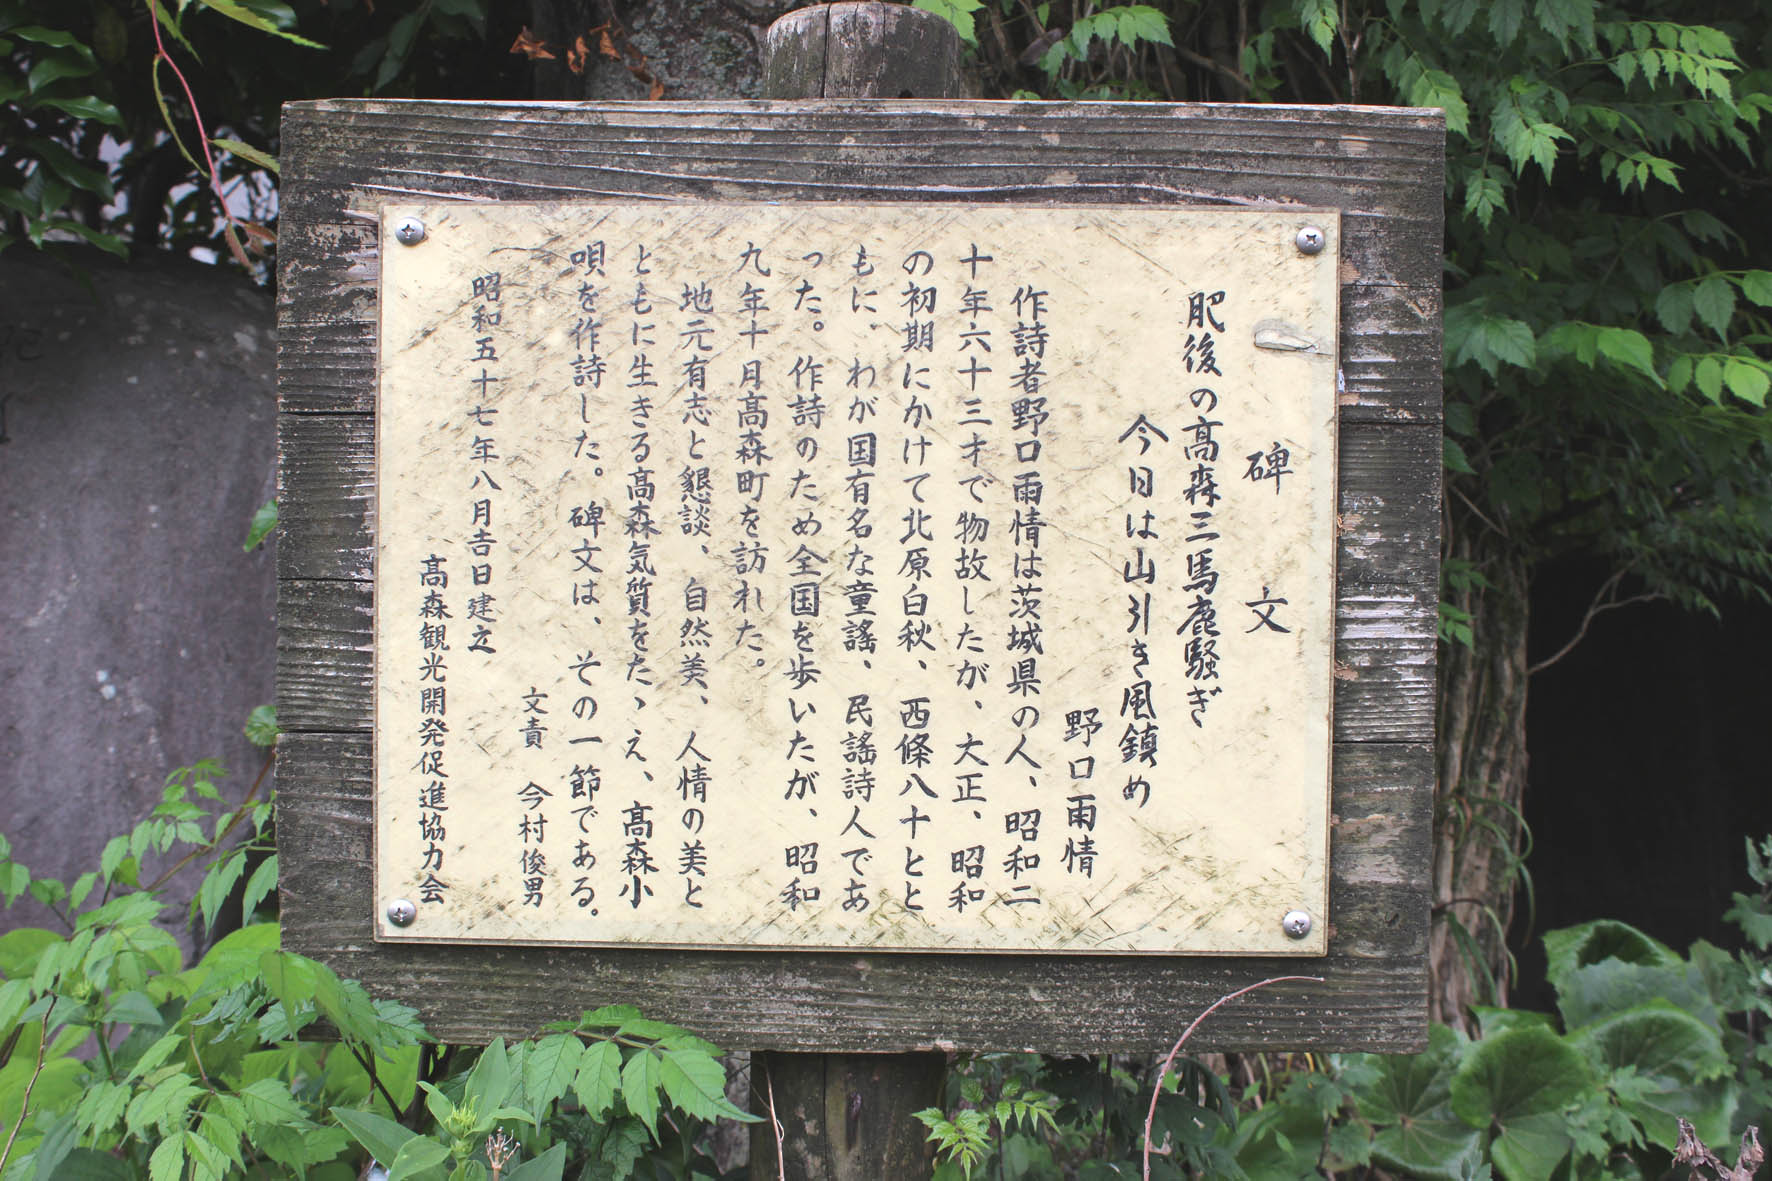 碑文
肥後の髙森三馬鹿騒ぎ
今日は山引き風鎮め
野口雨情
作詩者野口雨情は茨城県の人、昭和二
十年六十三才で物故したが、大正、昭和
の初期にかけて北原白秋、西條八十とと
もに、わが国有名な童謡、民謡詩人であ
った。作詩のため全国を歩いたが、昭和
九年十月髙森町を訪れた。
地元有志と懇談、自然美、人情の美と
ともに生きる髙森気質をたゝえ、髙森小
唄を作詩した。碑文は、その一節である。
文責 今村俊男
昭和五十七年八月吉日建之
髙森観光開発促進協力会